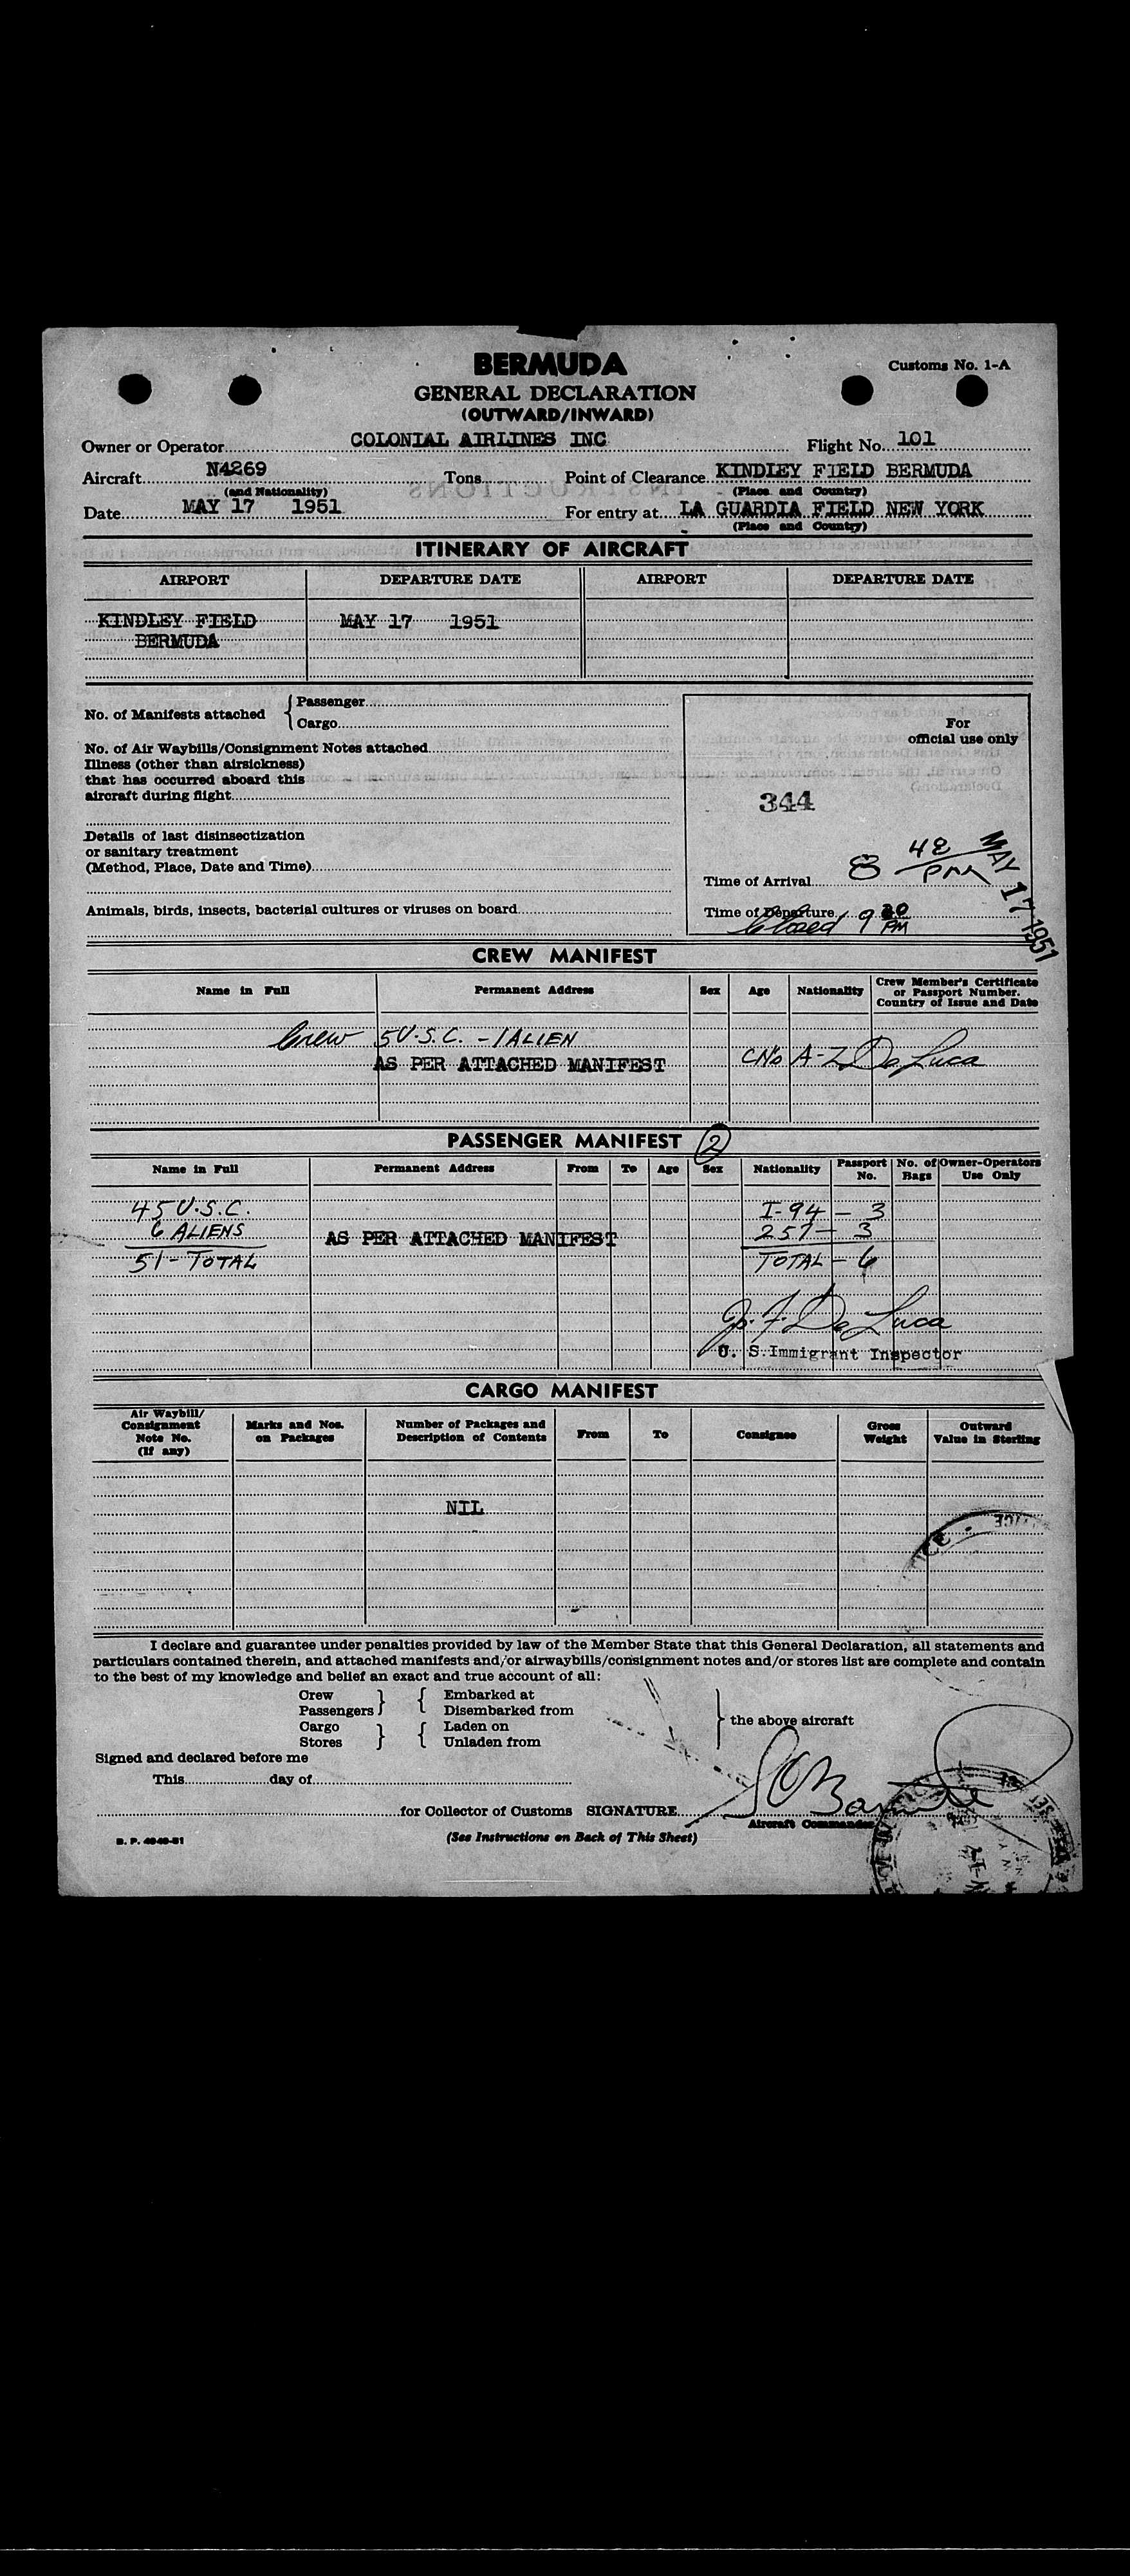 BERMUDA
Customs No. 1-A
GENERAL DECLARATION
(OUTWARD/INWARD)
Owner or Operator COLONIAL AIRLINES INC Flight No. 101
Aircraft N4269 Tons Point of Clearance KINDLEY FIELD BERMUDA
(and Nationality) (Place and Country)
Date MAY 17 1951 For entry at LA GUARDIA FIELD NEW YORK
(Place and Country)
ITINERARY OF AIRCRAFT
AIRPORT DEPARTURE DATE AIRPORT DEPARTURE DATE
KINDLEY FIELD MAY 17 1951
BERMUDA
No. of Manifests attached { Passenger
Cargo
No. of Air Waybills/Consignment Notes attached
Illness (other than airsickness)
that has occurred aboard this
aircraft during flight
Details of last disinsectization
or sanitary treatment
(Method, Place, Date and Time)
Animals, birds, insects, bacterial cultures or viruses on board
For
official use only
344
Time of Arrival 8 48 PM
MAY 17 1951
Time of Departure
Closed 9 30 PM
CREW MANIFEST
Name in Full Permanent Address Sex Age Nationality Crew Member's Certificate or Passport Number. Country of Issue and Date
Crew 5 U.S.C. - 1 ALIEN
AS PER ATTACHED MANIFEST De Luca
PASSENGER MANIFEST 2
Name in Full Permanent Address From To Age Sex Nationality Passport No. No. of Bags Owner-Operators Use Only
45 U.S.C. I-94 - 3
6 ALIENS AS PER ATTACHED MANIFEST 257 - 3
51 - TOTAL TOTAL - 6
F. De Luca
U. S. Immigrant Inspector
CARGO MANIFEST
Air Waybill/ Consignment Note No. (If any) Marks and Nos. on Packages Number of Packages and Description of Contents From To Consignee Gross Weight Outward Value in Sterling
NIL
I declare and guarantee under penalties provided by law of the Member State that this General Declaration, all statements and
particulars contained therein, and attached manifests and/or airwaybills/consignment notes and/or stores list are complete and contain
to the best of my knowledge and belief an exact and true account of all:
Crew } { Embarked at
Passengers Disembarked from
} the above aircraft
Cargo } { Laden on
Stores Unladen from
Signed and declared before me
This day of
for Collector of Customs SIGNATURE
Aircraft Commander
(See Instructions on Back of This Sheet)